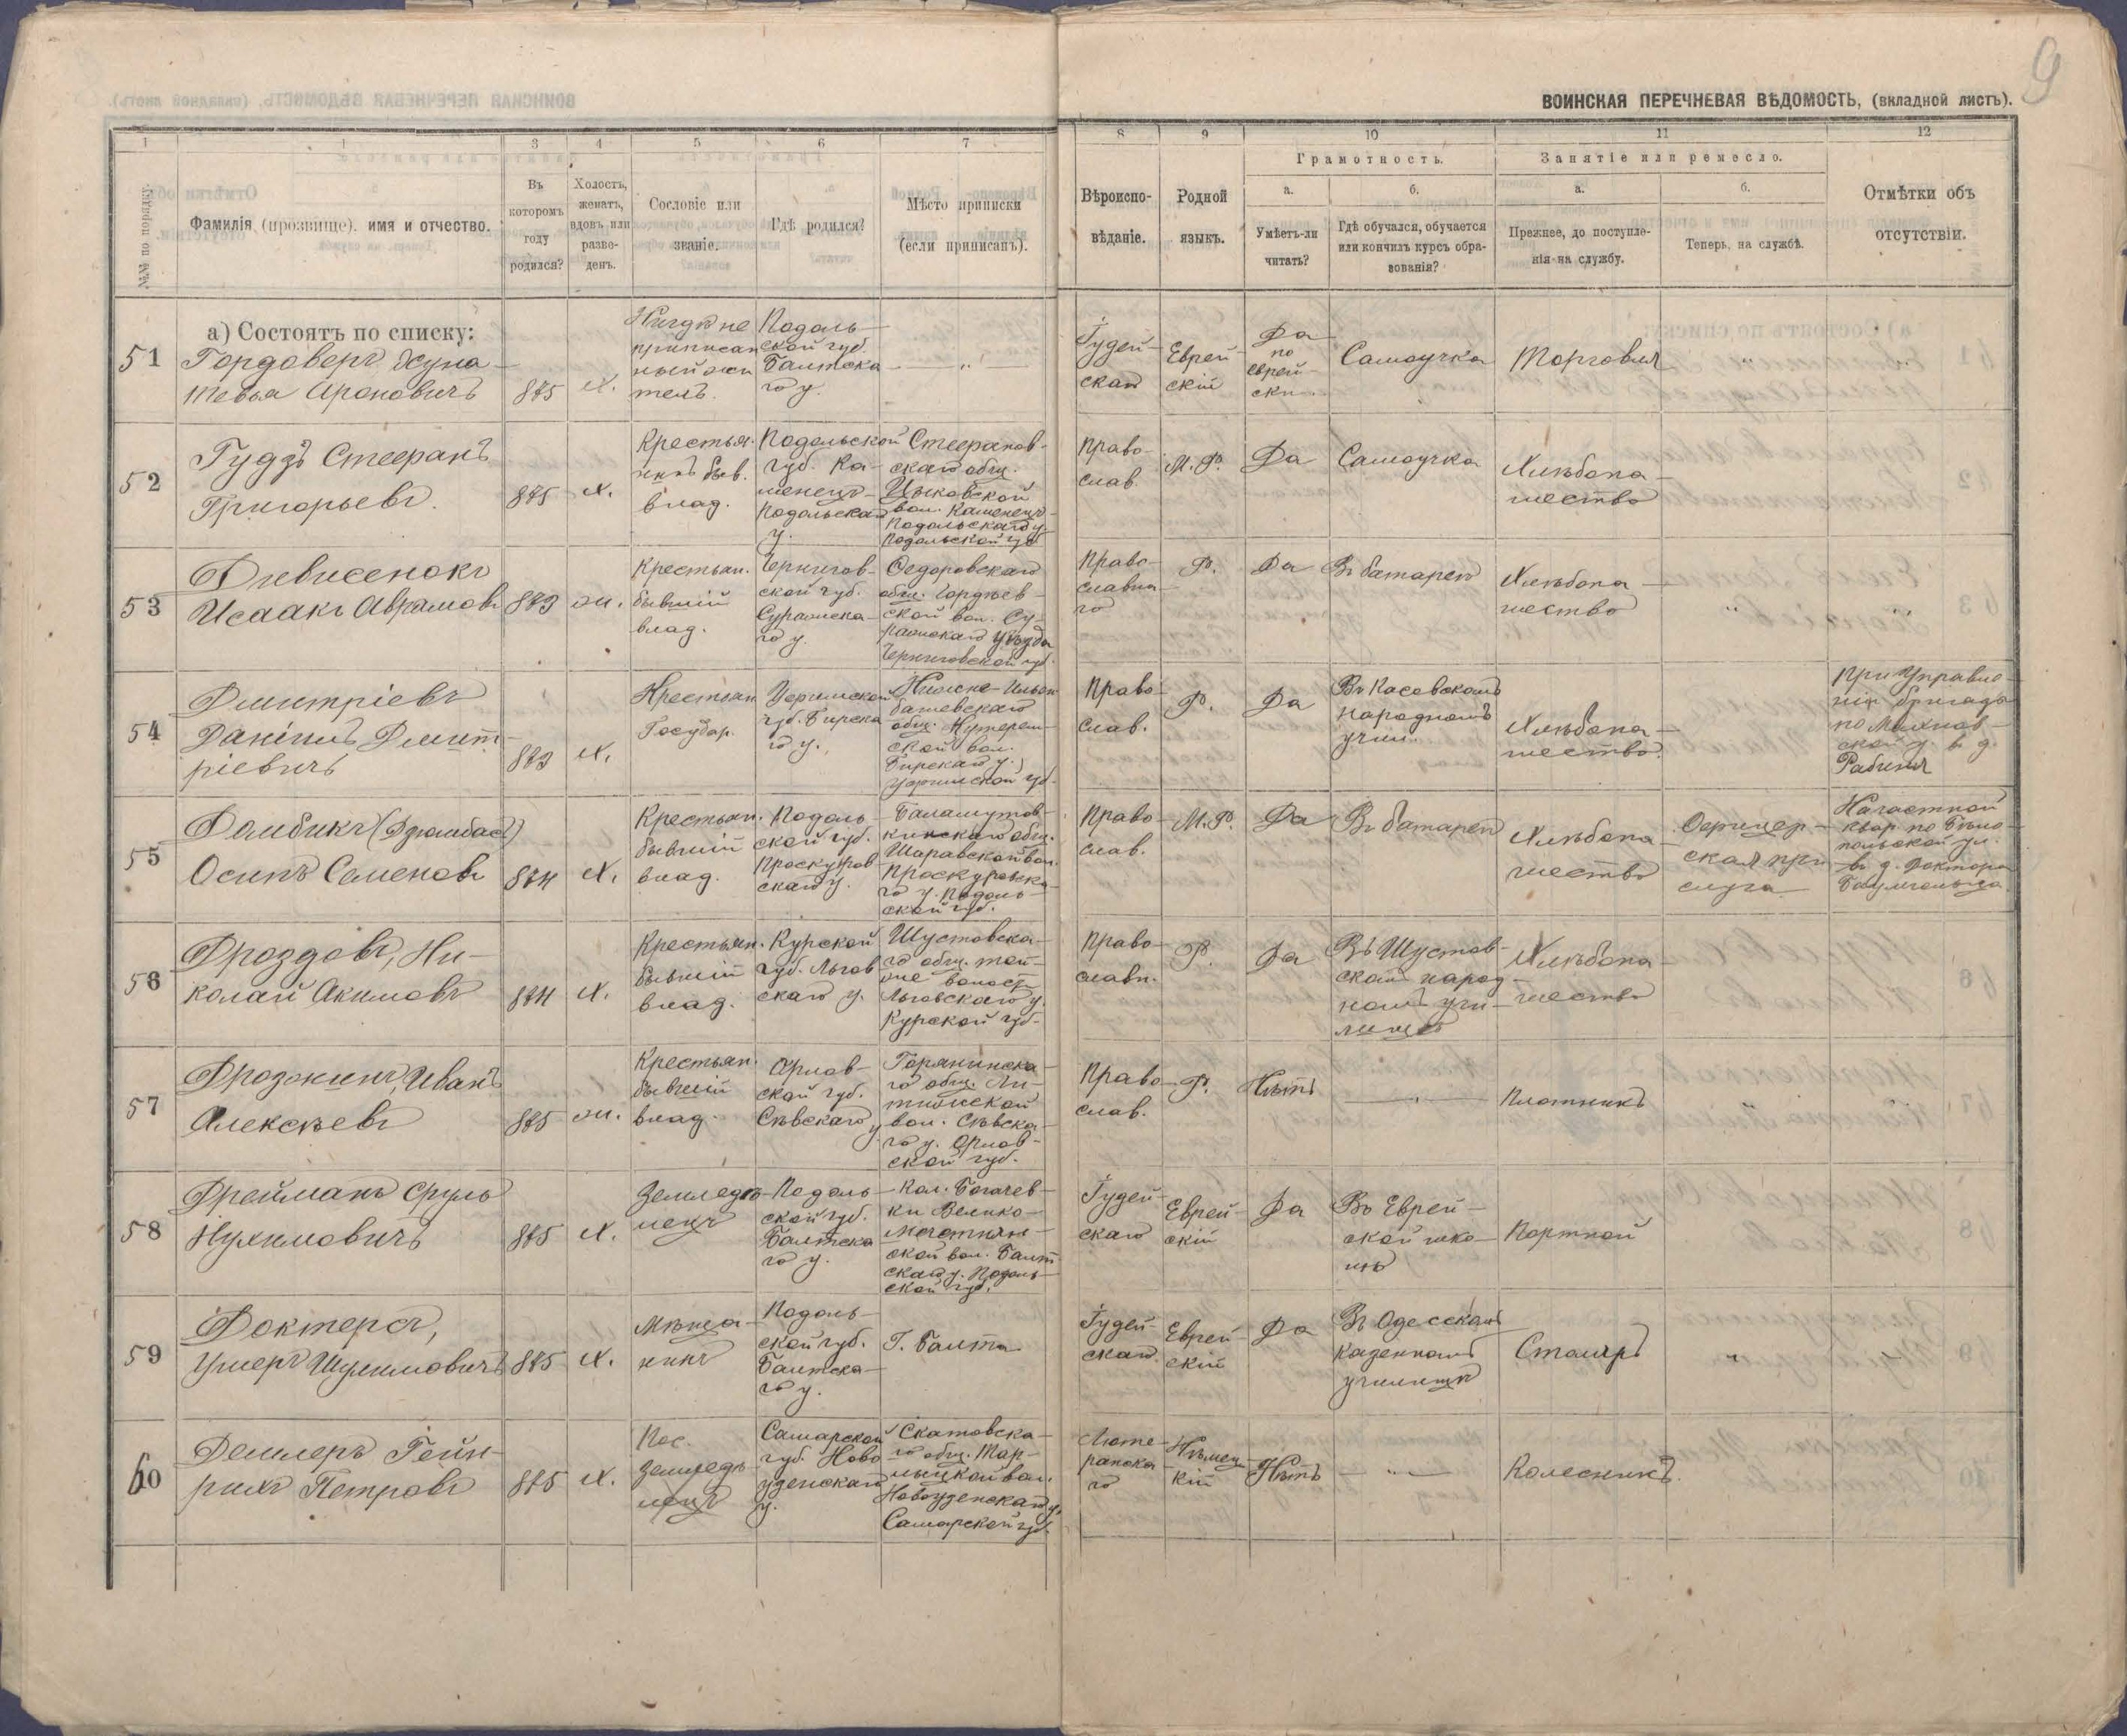 9
ВОИНСКАЯ ПЕРЕЧНЕВАЯ ВѢДОМОСТЬ, (вкладной листъ).
1 1 3 4 5 6 7 8 9 10 11 12
№№ по порядку.
Фамилія (прозвище), имя и отчество.
Въ
которомъ
году
родился?
Холостъ,
женатъ,
вдовъ или
разве-
денъ.
Сословіе или
званіе.
Гдѣ родился?
Мѣсто приписки
(если приписанъ).
Вѣроиспо-
вѣданіе.
Родной
языкъ.
Грамотность.
а.
Умѣетъ-ли
читать?
б.
Гдѣ обучался, обучается
или кончилъ курсъ обра-
зованія?
Занятіе или ремесло.
а.
Прежнее, до поступле-
нія на службу.
б.
Теперь, на службѣ.
Отмѣтки объ
отсутствіи.
а) Состоятъ по списку:
51
Гордоверъ Хуна-
Тевья Ароновичъ
875
Х.
Нигдѣ не
приписан
ный жи
тель.
Подоль-
ской губ.
Балтска
го у.
— " —
Іудей-
скаго
Еврей-
скій
Да
по
еврей-
ски.
Самоучка
Торговля
"
"
52
Гудзъ Стефанъ
Григорьевъ.
875
Х.
Крестья.
нинъ быв.
влад.
Подольской
губ. Ка-
менецъ-
Подольскаго
у.
Стефанов-
скаго общ.
Цыковской
вол. Каменецъ-
Подольскаго у.
Подольской губ
Право-
слав.
М.Р.
Да
Самоучка
Хлѣбопа-
шество
53
Дивисенокъ
Исаакъ Аврамовъ
873
ж.
Крестьян.
бывшій
влад.
Чернигов-
ской губ.
Суражска-
го у.
Федоровскаго
общ. Гордѣев-
ской вол. Су-
ражскаго уѣзда
Черниговской губ.
Право-
славна-
го
Р.
Да
Въ батареѣ
Хлѣбопа-
шество
"
54
Дмитріевъ
Даніилъ Дмит-
ріевичъ
873
Х.
Крестьян
Государ.
Уфимской
губ. Бирска-
го у.
общ.
ской вол.
Бирскаго у.
Уфимской губ.
Право-
слав.
Р.
Да
народномъ
учил.
Хлѣбопа-
шество.
При Управле-
ніи бригады
по Махнов-
ской у. въ д.
55
Домбикъ
Осипъ Семеновъ
874
Х.
Крестьян.
бывшій
влад.
Подоль-
ской губ.
Проскуров-
скаго у.
Баламутов-
Шаравской вол.
Проскуровска-
го у. Подоль-
ской губ.
Право-
слав.
М.Р.
Да
Въ батареѣ
Хлѣбопа-
шество
Офицер-
ская при-
слуга
На частной
квар. по Бѣло-
польской ул.
въ д. Доктора
56
Дроздовъ, Ни-
колай Акимовъ
874
Х.
Крестьян.
бывшій
влад.
Курской
губ. Льгов
скаго у.
Шустовска-
го общ. той-
же волости
Льговскаго у.
Курской губ.
Право-
славн.
Р.
Да
Въ Шустов-
скомъ народ-
номъ учи-
лищѣ
Хлѣбопа-
шество
57
Дрожжинъ, Иванъ
Алексѣевъ
875
ж.
Крестьян.
бывшій
влад.
Орлов-
ской губ.
Сѣвскаго у.
го общ. Ли-
тижской
вол. Сѣвска-
го у. Орлов-
ской губ.
Право-
слав.
Р.
Нѣтъ
— " —
Плотникъ
58
Дрейманъ Сруль
Нухимовичъ
875
Х.
Земледѣ-
лецъ
Подоль-
ской губ.
Балтска
го у.
Кол. Богачев-
ки Велико-
ской вол. Балт
скаго у. Подоль-
ской губ.
Іудей-
скаго
Еврей-
скій
Да
Въ Еврей-
ской шко-
лѣ
Портной
59
Докторъ,
Умеръ Шулимовичъ
875
Х.
Мѣща-
нинъ
Подоль-
ской губ.
Балтска-
го у.
Г. Балта
Іудей-
скаго.
Еврей-
скій
Да
Въ Одесскомъ
казенномъ
училищѣ
Столяръ
"
"
60
Демлеръ Гейн-
рихъ Петровъ
875
Х.
Пос.
земледѣ-
лецъ
Самарской
губ. Ново
узенскаго
у.
Скатовска-
го общ. Тар-
лыцкой вол.
Новоузенскаго у.
Самарской губ.
Люте-
ранска-
го
Нѣмец-
кій
Нѣтъ
— " —
Колесникъ.